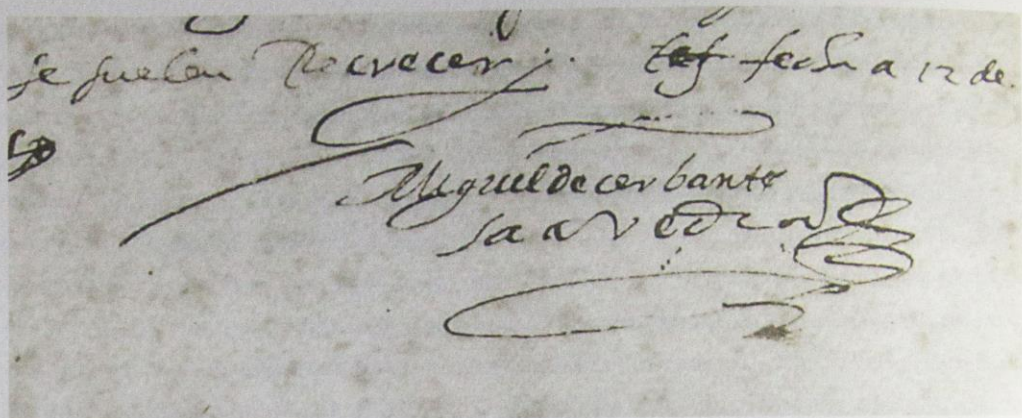 se suelen Recrecer. fecha a 12 de
Miguel de cerbante
saavedra